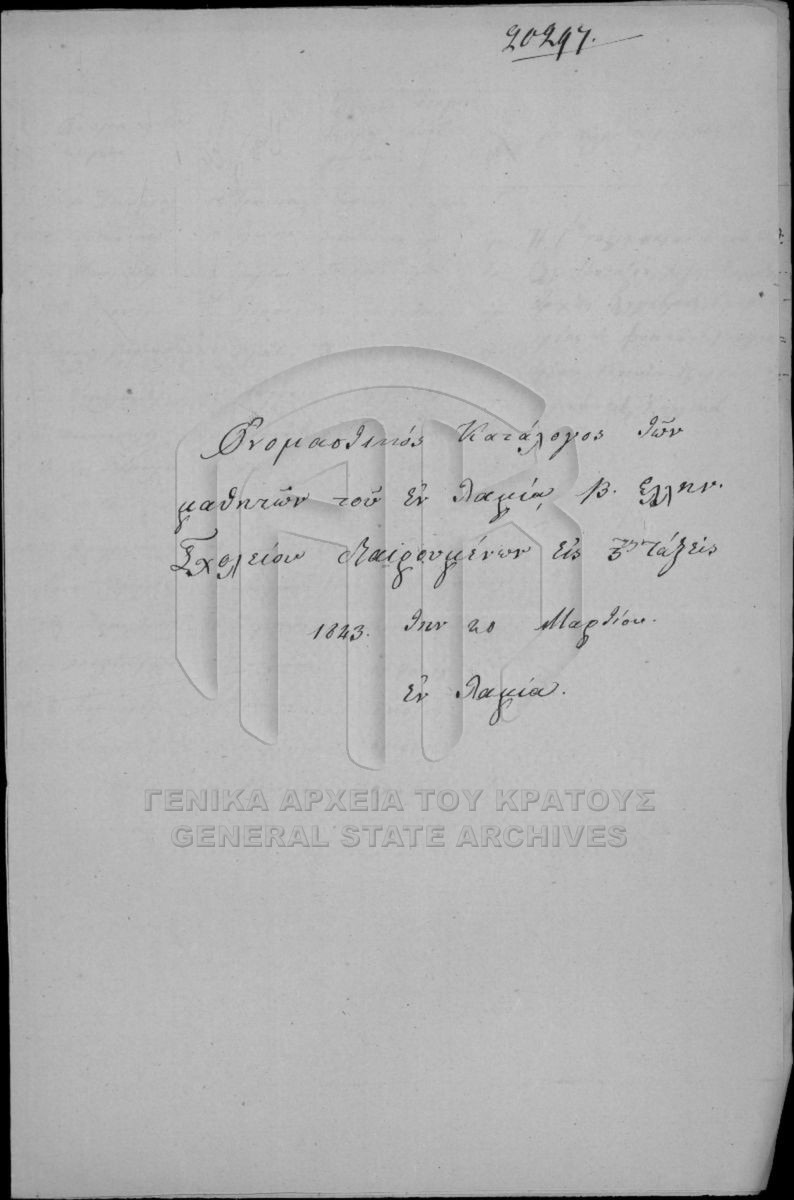 20297.
Ὀνομαστικός Κατάλογος τῶν
μαθητῶν τοῦ ἐν Λαμίᾳ β. Ἑλλην.
Σχολείου διαιρουμένων εἰς τάξεις
1843. την 20 Μαρτίου.
ἐν Λαμία.
ΓΕΝΙΚΑ ΑΡΧΕΙΑ ΤΟΥ ΚΡΑΤΟΥΣ
GENERAL STATE ARCHIVES